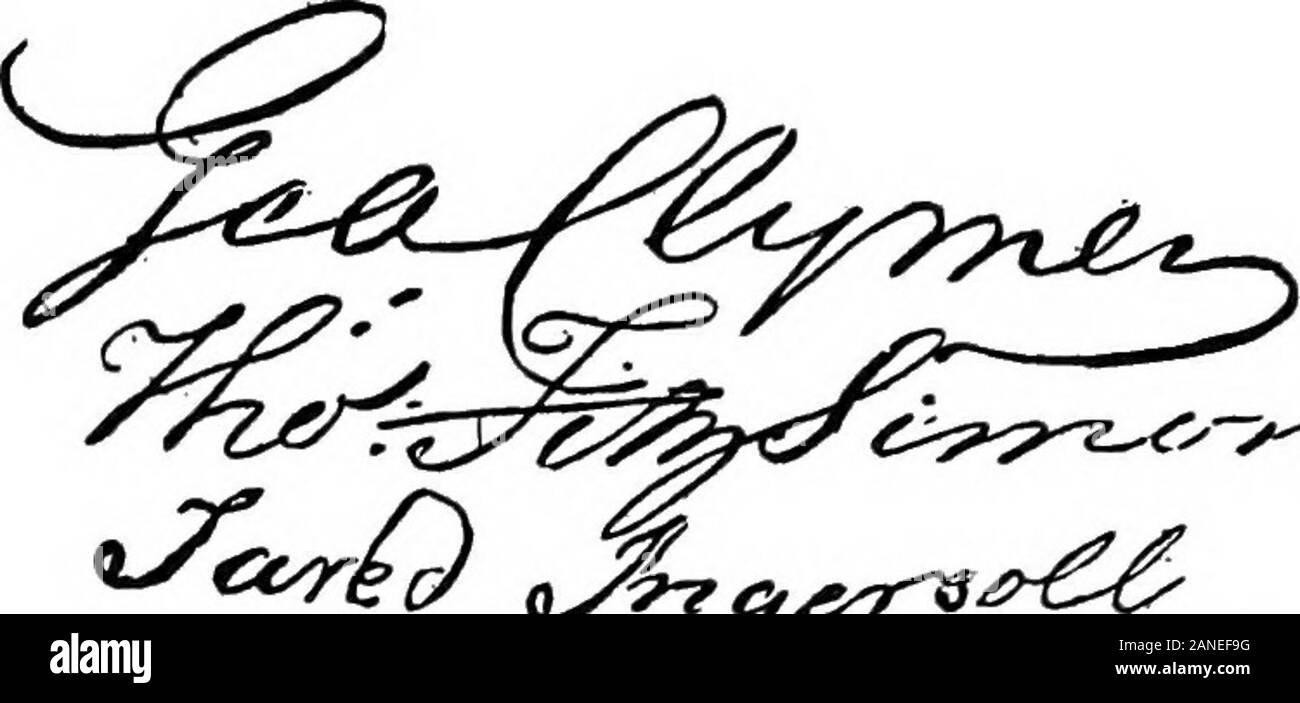 Geo Clymer
Thos. FitzSimon
Jared Ingersoll
alamy
Image ID: 2ANEF9G
www.alamy.com